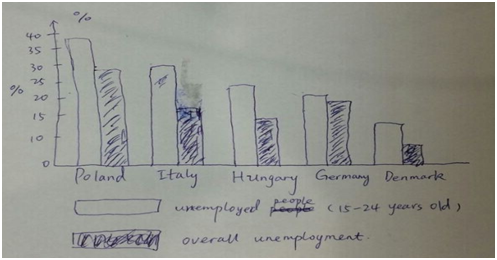 %
40
35
30
%
25
20
15
10
0
Poland Italy Hungary Germany Denmark
unemployed people people (15-24 years old)
overall unemployment.